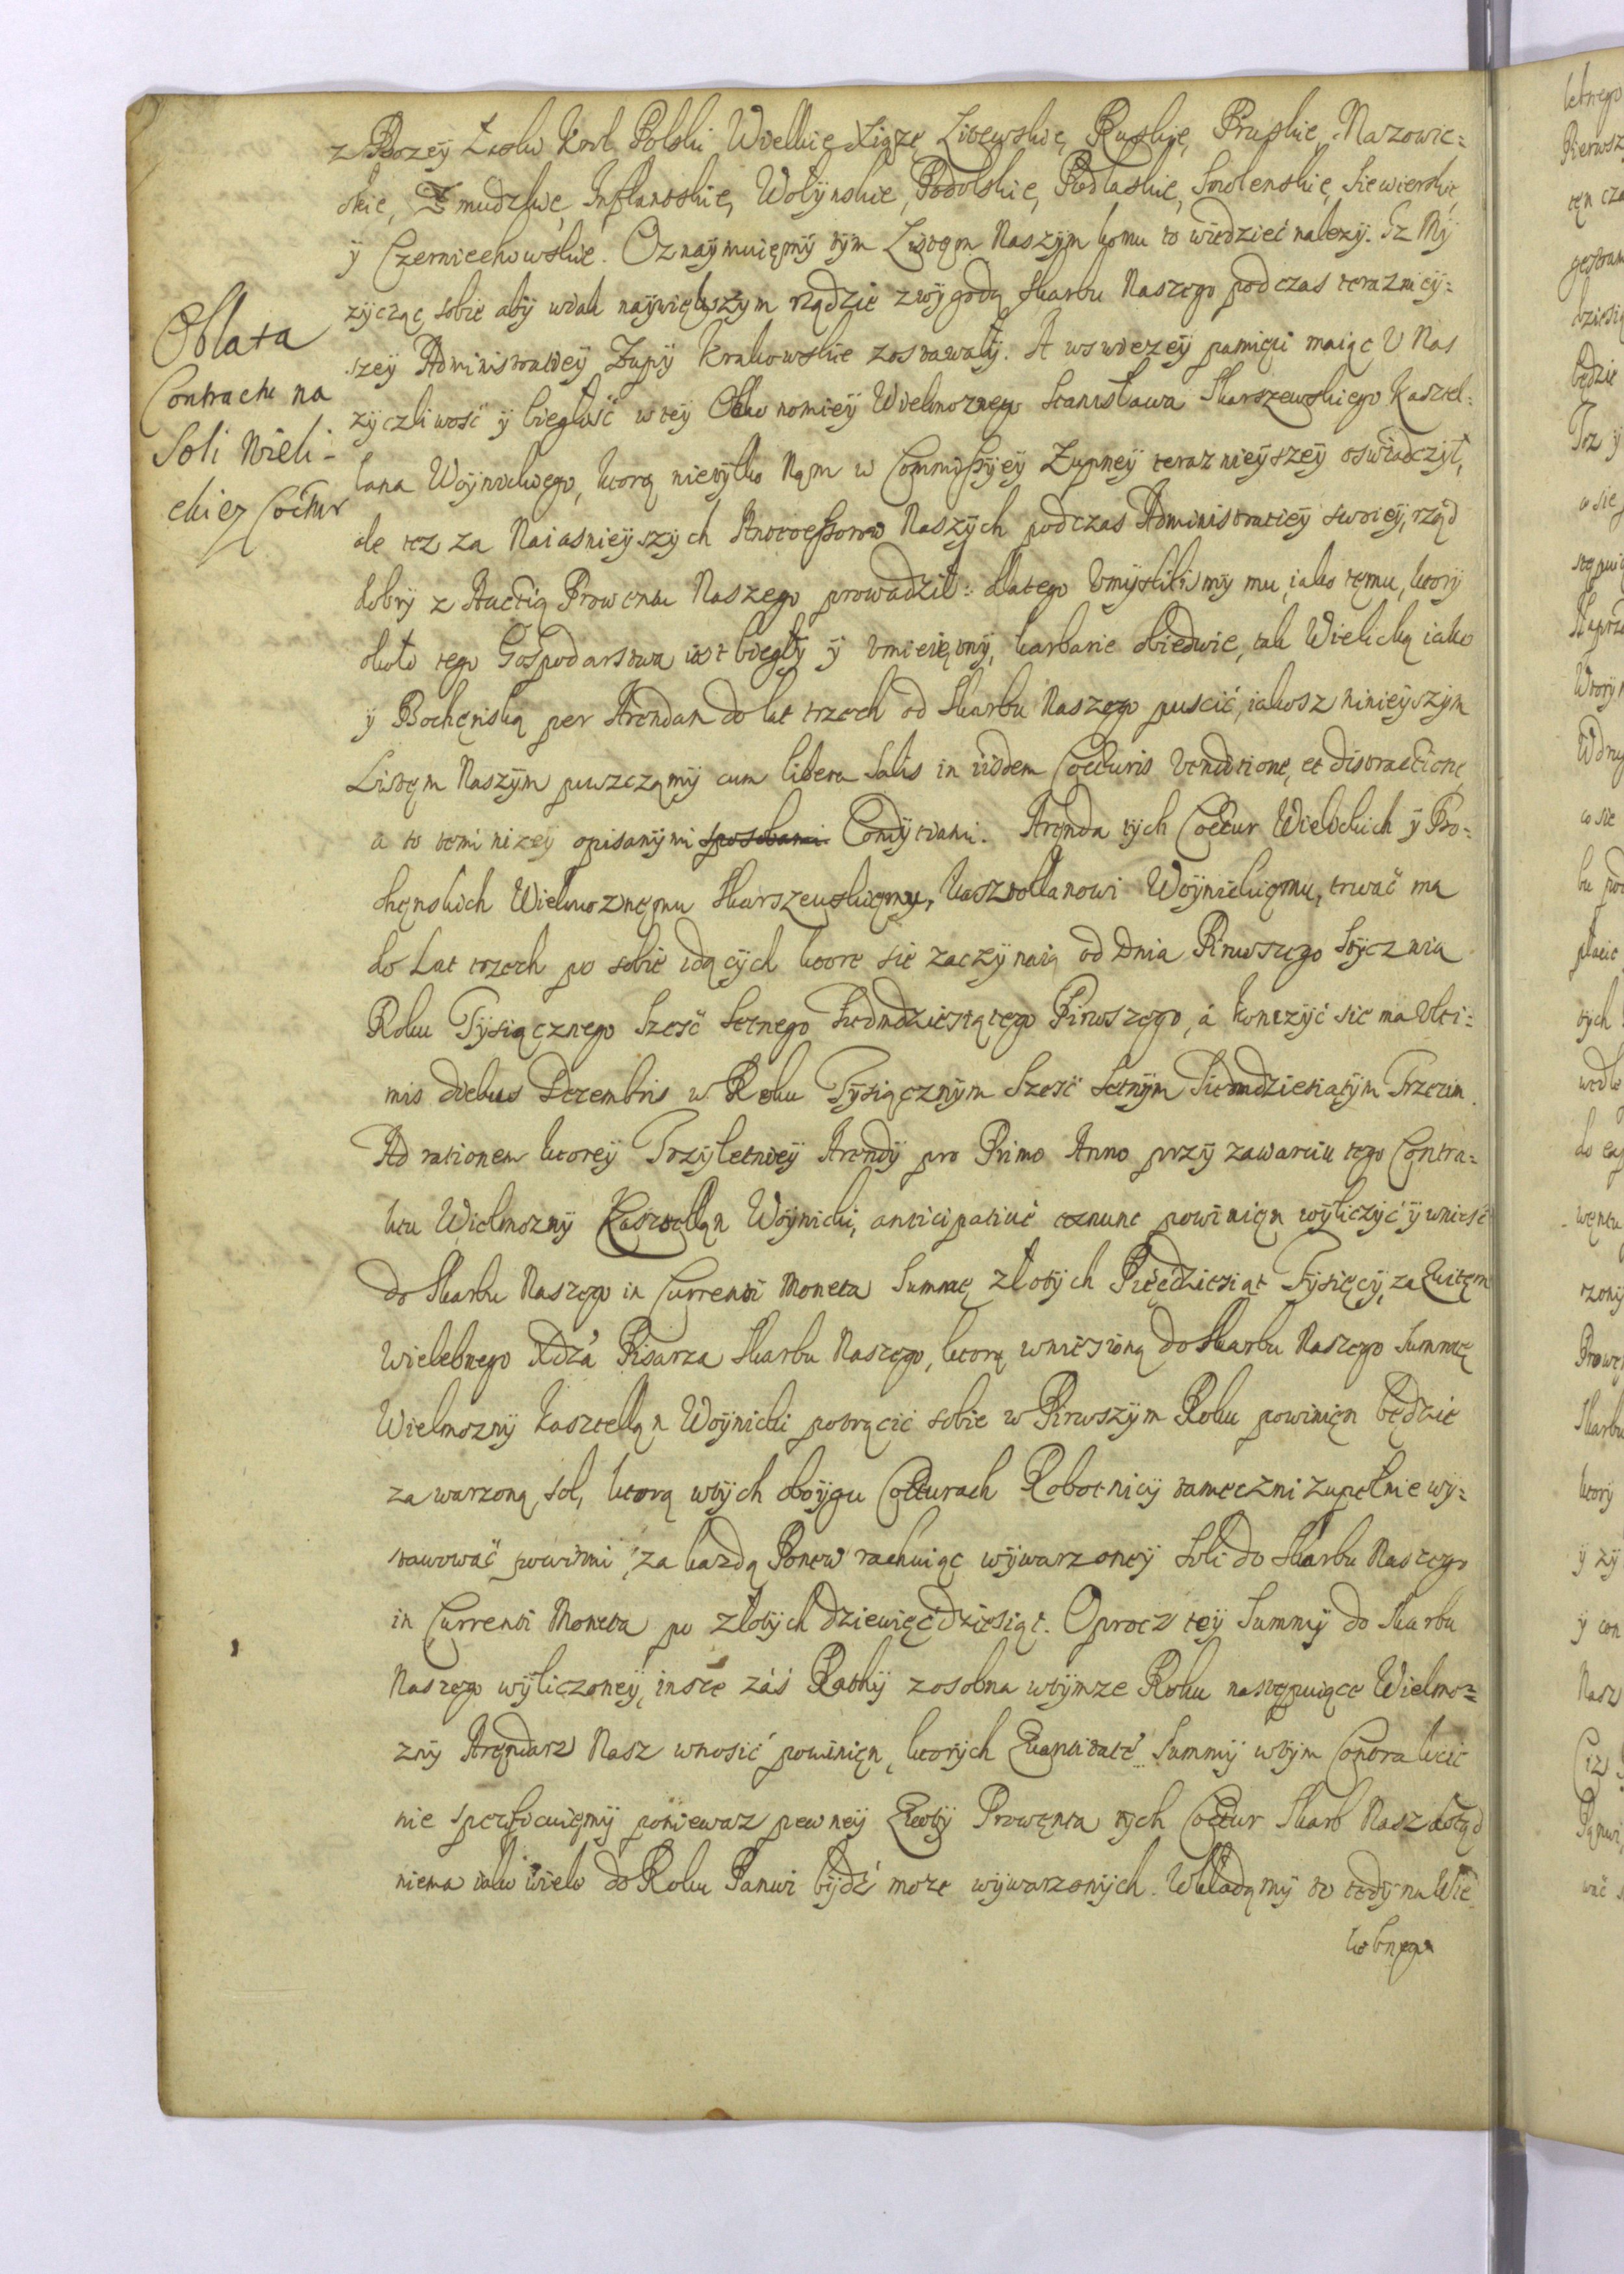 z Bozey Łaski Krol Polski Wielkie Xiąze Litewskie, Ruskie, Pruskie, Mazowie=
ckie, Zmudzkie, Inflantskie, Wołynskie, Podolskie, Podlaskie, Smolenskie, Siewierskie,
y Czerniechowskie. Oznaymuięmy tym Listęm Naszym komu to wiedzieć nalezy. Iz My
zycząc sobie aby wiak naywiększym rządzie zwygodą Skarbu Naszego podczas terazniey=
szey Administratiey Zupy Krakowskie zostawały. A wswiezey pamięci maiąc U Nas
zyczliwość y biegłość wtey Oekonomiey Wielmoznego Stanisława Skarszewskiego Kasztel=
lana Woynickiego, ktorą nietylko Nąm w Commissyey Zupney teraznieyszey oswiadczył,
ale tez za Naiasnieyszych Antecessorow Naszych podczas Administratiey swoiey, rząd
dobry z Auctią Prowentu Naszego prowadził: dlatego Umyslilismy mu, iako tęmu, ktory
około tego Gospodarstwa iest biegły y Umieiętny, karbarie obiedwie, tak Wielicką iako
y Bochęnską per Arendam do lat trzech od Skarbu Naszego puscić, iakosz ninieyszym
Listęm Naszym puszczamy cum libera Salis in iisdem Cocturis Venditione, et distractione,
a to temi nizey opisanymi sposobami Condytiami. Aręnda tych Coctur Wielickich y Bo=
chęnskich Wielmoznęmu Skarszewskięmu, Kasztellanowi Woynickięmu, trwać ma
do Lat trzech po sobie idących ktore sie zaczynaią od Dnia Pirwszego Stycznia
Roku Tysiącznego Szesć Setnego Siedmdziesiątego Pirwszego, á konczyć sie ma Ulti=
mis diebus Decembris w Roku Tysiącznym Szesć Setnym Siedmdziesiątym Trzecim.
Ad rationem ktorey Trzyletniey Arendy pro Primo Anno przy zawarciu tego Contra=
ktu Wielmozny Kasztellan Woynicki, anticipative etnunc powinięn wyliczyć y wniesć
do Skarbu Naszego in Currenti Moneta Summę złotych Pięćdziesiąt Tysięcy, za Quitęm
Wielebnego Xdza Pisarza Skarbu Naszego, ktorą wniesioną do Skarbu Naszego Summę
Wielmozny Kasztellan Woynicki potrącić sobie w Pirwszym Roku powinięn będzie
za warzoną sol, ktorą wtych oboygu Cocturach Robotnicy tameczni zupełnie wy=
stawować powinni, za kazdą Ponew rachuiąc wywarzoney Soli do Skarbu Naszego
in Currenti Moneta po złotych dziewięćdziesiąt. Oprocz tey Summy do Skarbu
Naszego wyliczoney, insze záś Rathy zosobna wtymze Roku nastęmpuiące Wielmo=
zny Aręndarz Nasz wnosić powinięn, ktorych Quantitate Summy wtym Contrakcie
nie specificuięmy poniewaz pewney Quoty Prowęntu tych Coctur Skarb Nasz dotąd
niema iako wiele do Roku Panwi bydź moze wywarzonych. Wkładamy to tedy na Wie
lebnego
Oblata
Contractu na
Soli Wieli-
ckiey Coctur